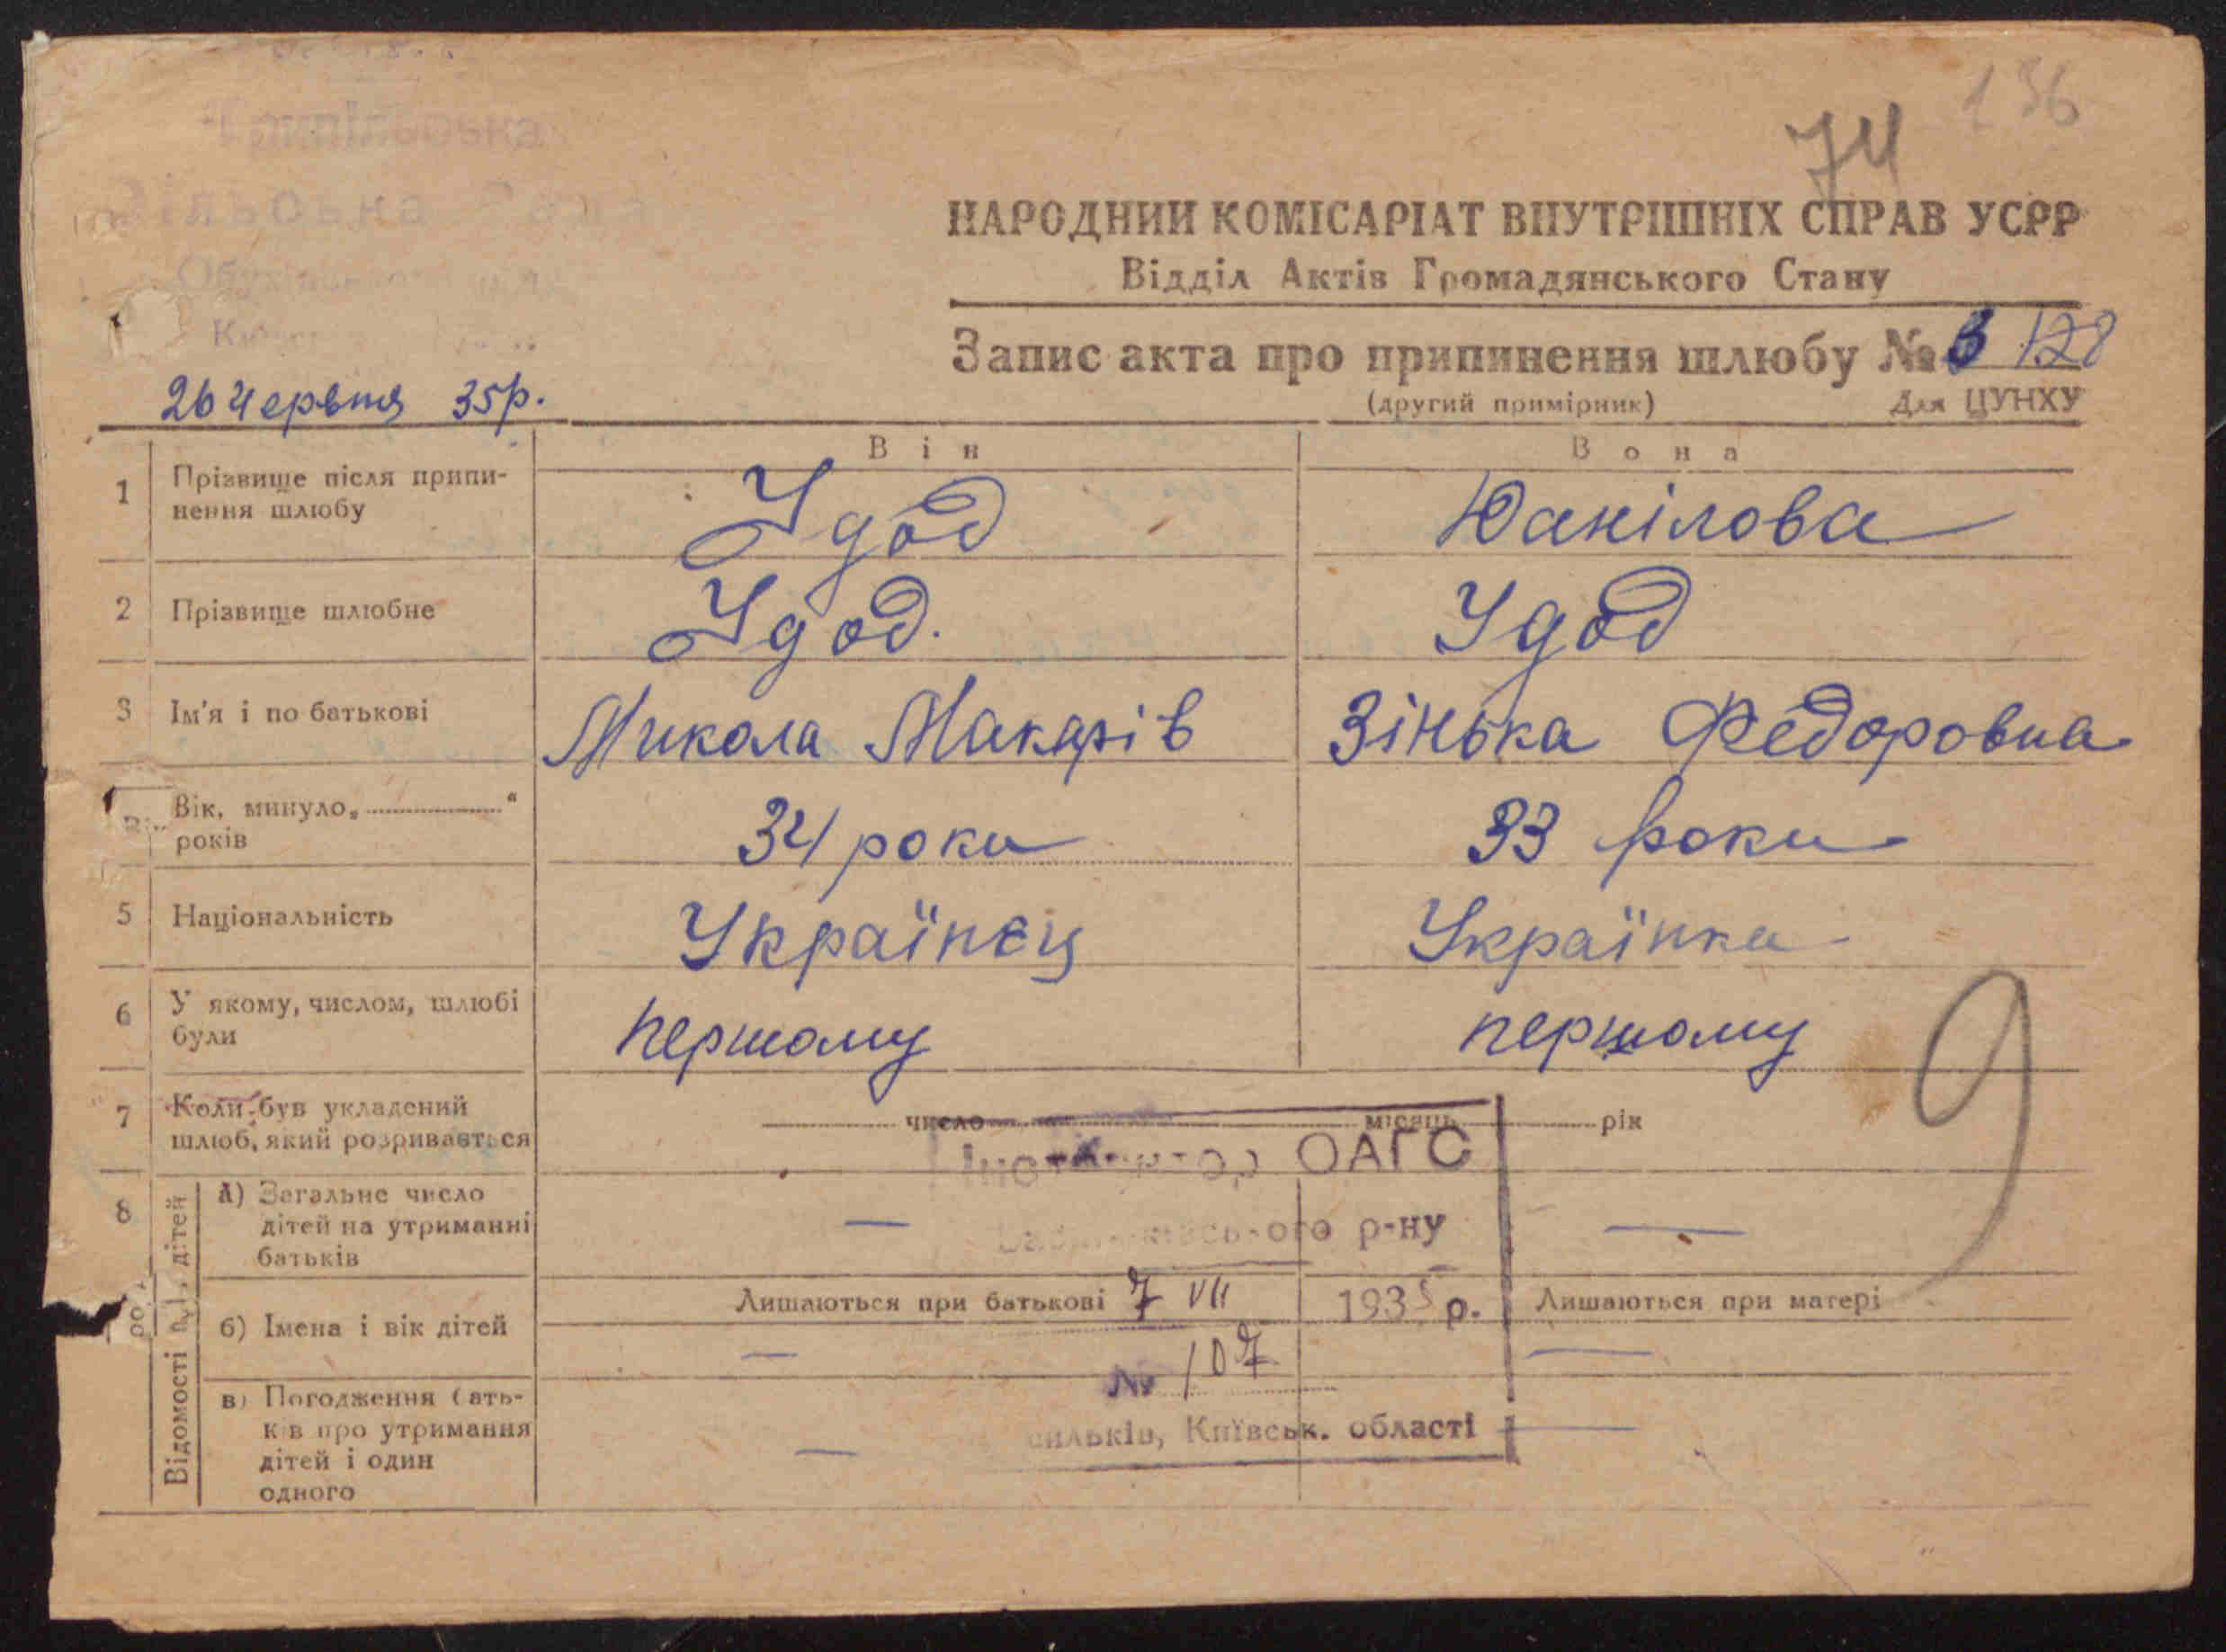 136
74
Трипільська
Сільська Рада
НАРОДНИЙ КОМІСАРІАТ ВНУТРІШНІХ СПРАВ УСРР
Відділ Актів Громадянського Стану
Запис акта про припинення шлюбу № 3 128
(другий примірник) Для ЦУНХУ
26 червня 35р.
Він Вона
1 Прізвище після припи-
нення шлюбу Удод Юанілова
2 Прізвище шлюбне Удод. Удод
3 Ім'я і по батькові Микола Макарів Зінька Федоровна
Вік, минуло „ “
років 34 роки 33 роки
5 Національність Українец Українка
6 У якому, числом, шлюбі
були першому першому
7 Коли був укладений
шлюб, який розривається число місяць рік
ОАГС
8 Відомості дітей
а) Загальне число
дітей на утриманні
батьків — р-ну —
б) Імена і вік дітей Лишаються при батькові 7 VII 1935 р. Лишаються при матері
— № 107 —
в) Погодження бать-
ків про утримання
дітей і один
одного — Київськ. області —
9